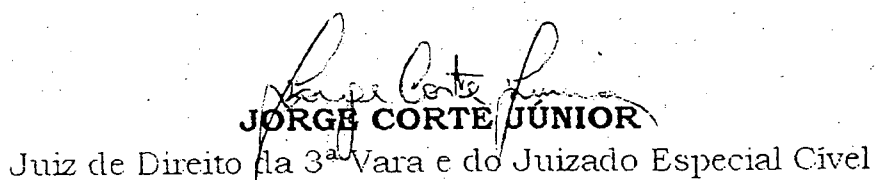 Jorge Corte Júnior
JORGE CORTE JÚNIOR
Juiz de Direito da 3ª Vara e do Juizado Especial Cível